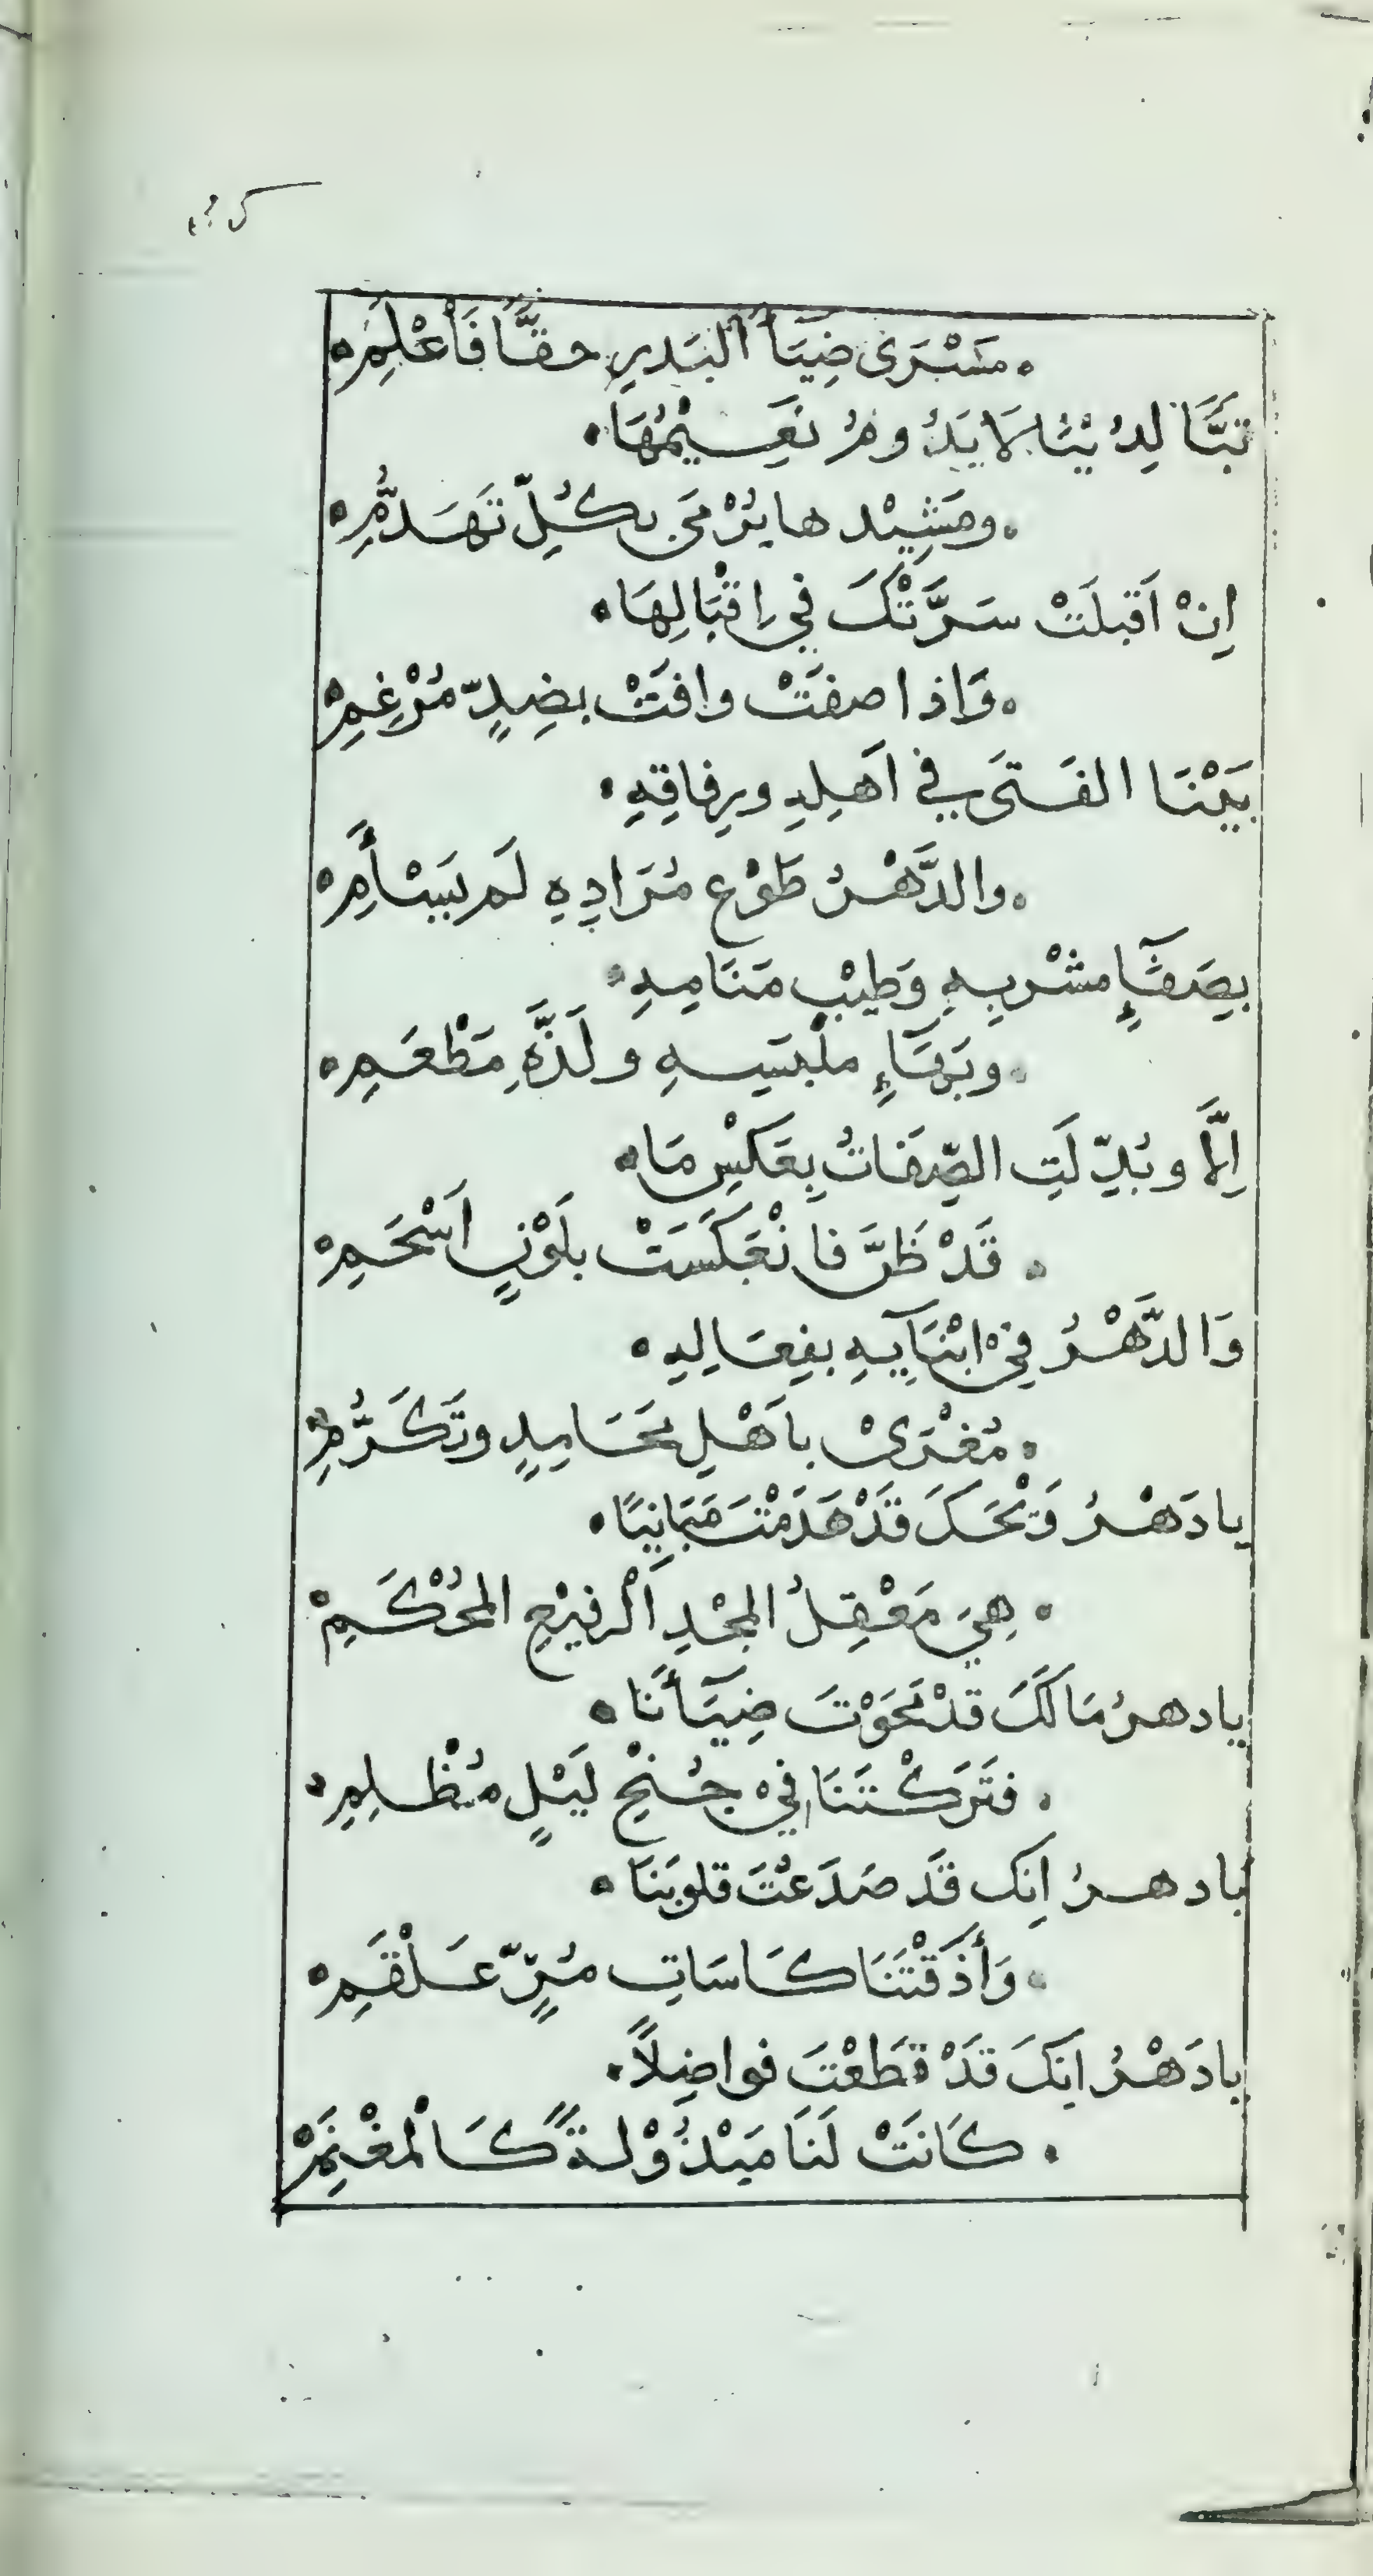 مَسْرَى ضِيَأُ البَدرِ حقًّا فَاْعْلَمِ
تَبًّا لِدُنْيًا لَا يَدُومُ نَعِيْمُهَا
ومَشِيْدها يُرْمَى بكُلِّ تَهَدُّمِ
اِنْ اَقبلَتْ سَرَّتْكَ في اِقْبَالِهَا
وَاذا صفَتْ وافتْ بضِدٍّ مُرْغِمِ
بَيْنَا الفَتَى في اَهلِهِ ورِفاقِهِ
والدَّهْرُ طَوْع مُرَادِهِ لَم يَسْأَمِ
بصَفَآءِ مشْربِهِ وَطِيْبِ مَنَامِهِ
وبَهَآءِ ملْبَسِهِ ولَذَّةِ مَطْعَمِ
اِلَّا وبُدِّلَتِ الصِّفَاتُ بِعَكْسِ مَا
قَدْ ظَنَّ فانْعَكَسَتْ بلَوْنٍ اَسْحَمِ
وَالدَّهْرُ فِيْ ابْنَآيِهِ بفِعَالِهِ
مُغْرىً باَهْلِ مَحَامِدٍ وتَكَرُّمِ
يادَهْرُ وَيْحَكَ قَدْ هَدَمْتَ مَبَانِيًا
هِيَ مَعْقِلُ المجْدِ اَلْرفيْعِ المُحْكَمِ
يادهرُ مَالَكَ قدْ مَحَوْتَ ضِيَآأَنَا
فتَرَكْتَنَا فيْ جُنْحِ لَيْلٍ مُظْلِمِ
يادهرُ اِنك قَد صَدَعْتَ قلوبَنَا
وَأَذَقْتَنَا كَاسَاتِ مُرٍّ عَلْقَمِ
يادَهْرُ اِنَكَ قَدْ قَطَعْتَ فواضِلاً
كَانَتْ لَنَا مَبْذُوْلةً كَالْمغْنَمِ